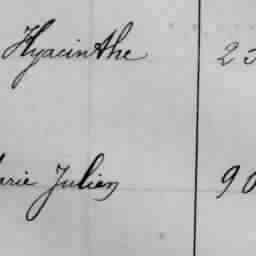 Hyacinthe 23
arie Julien 90